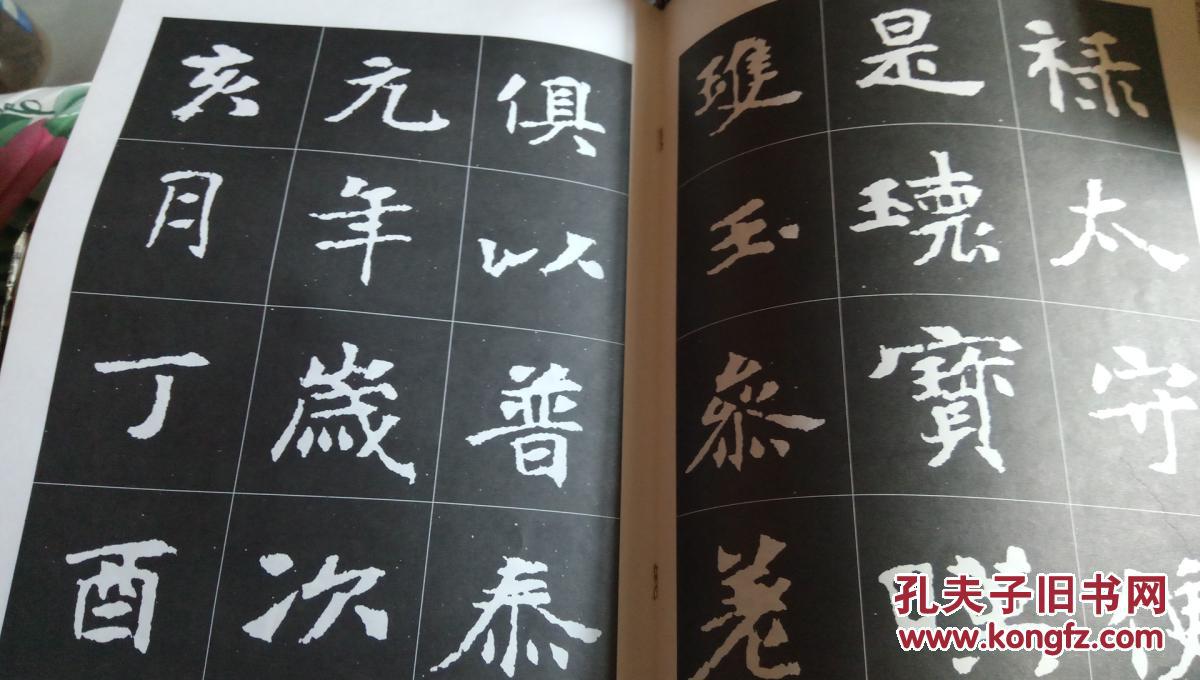 禄太守
是瓌寶
瓊玉叅差
俱以普泰
元年歲次
亥月丁酉
孔夫子旧书网
www.kongfz.com